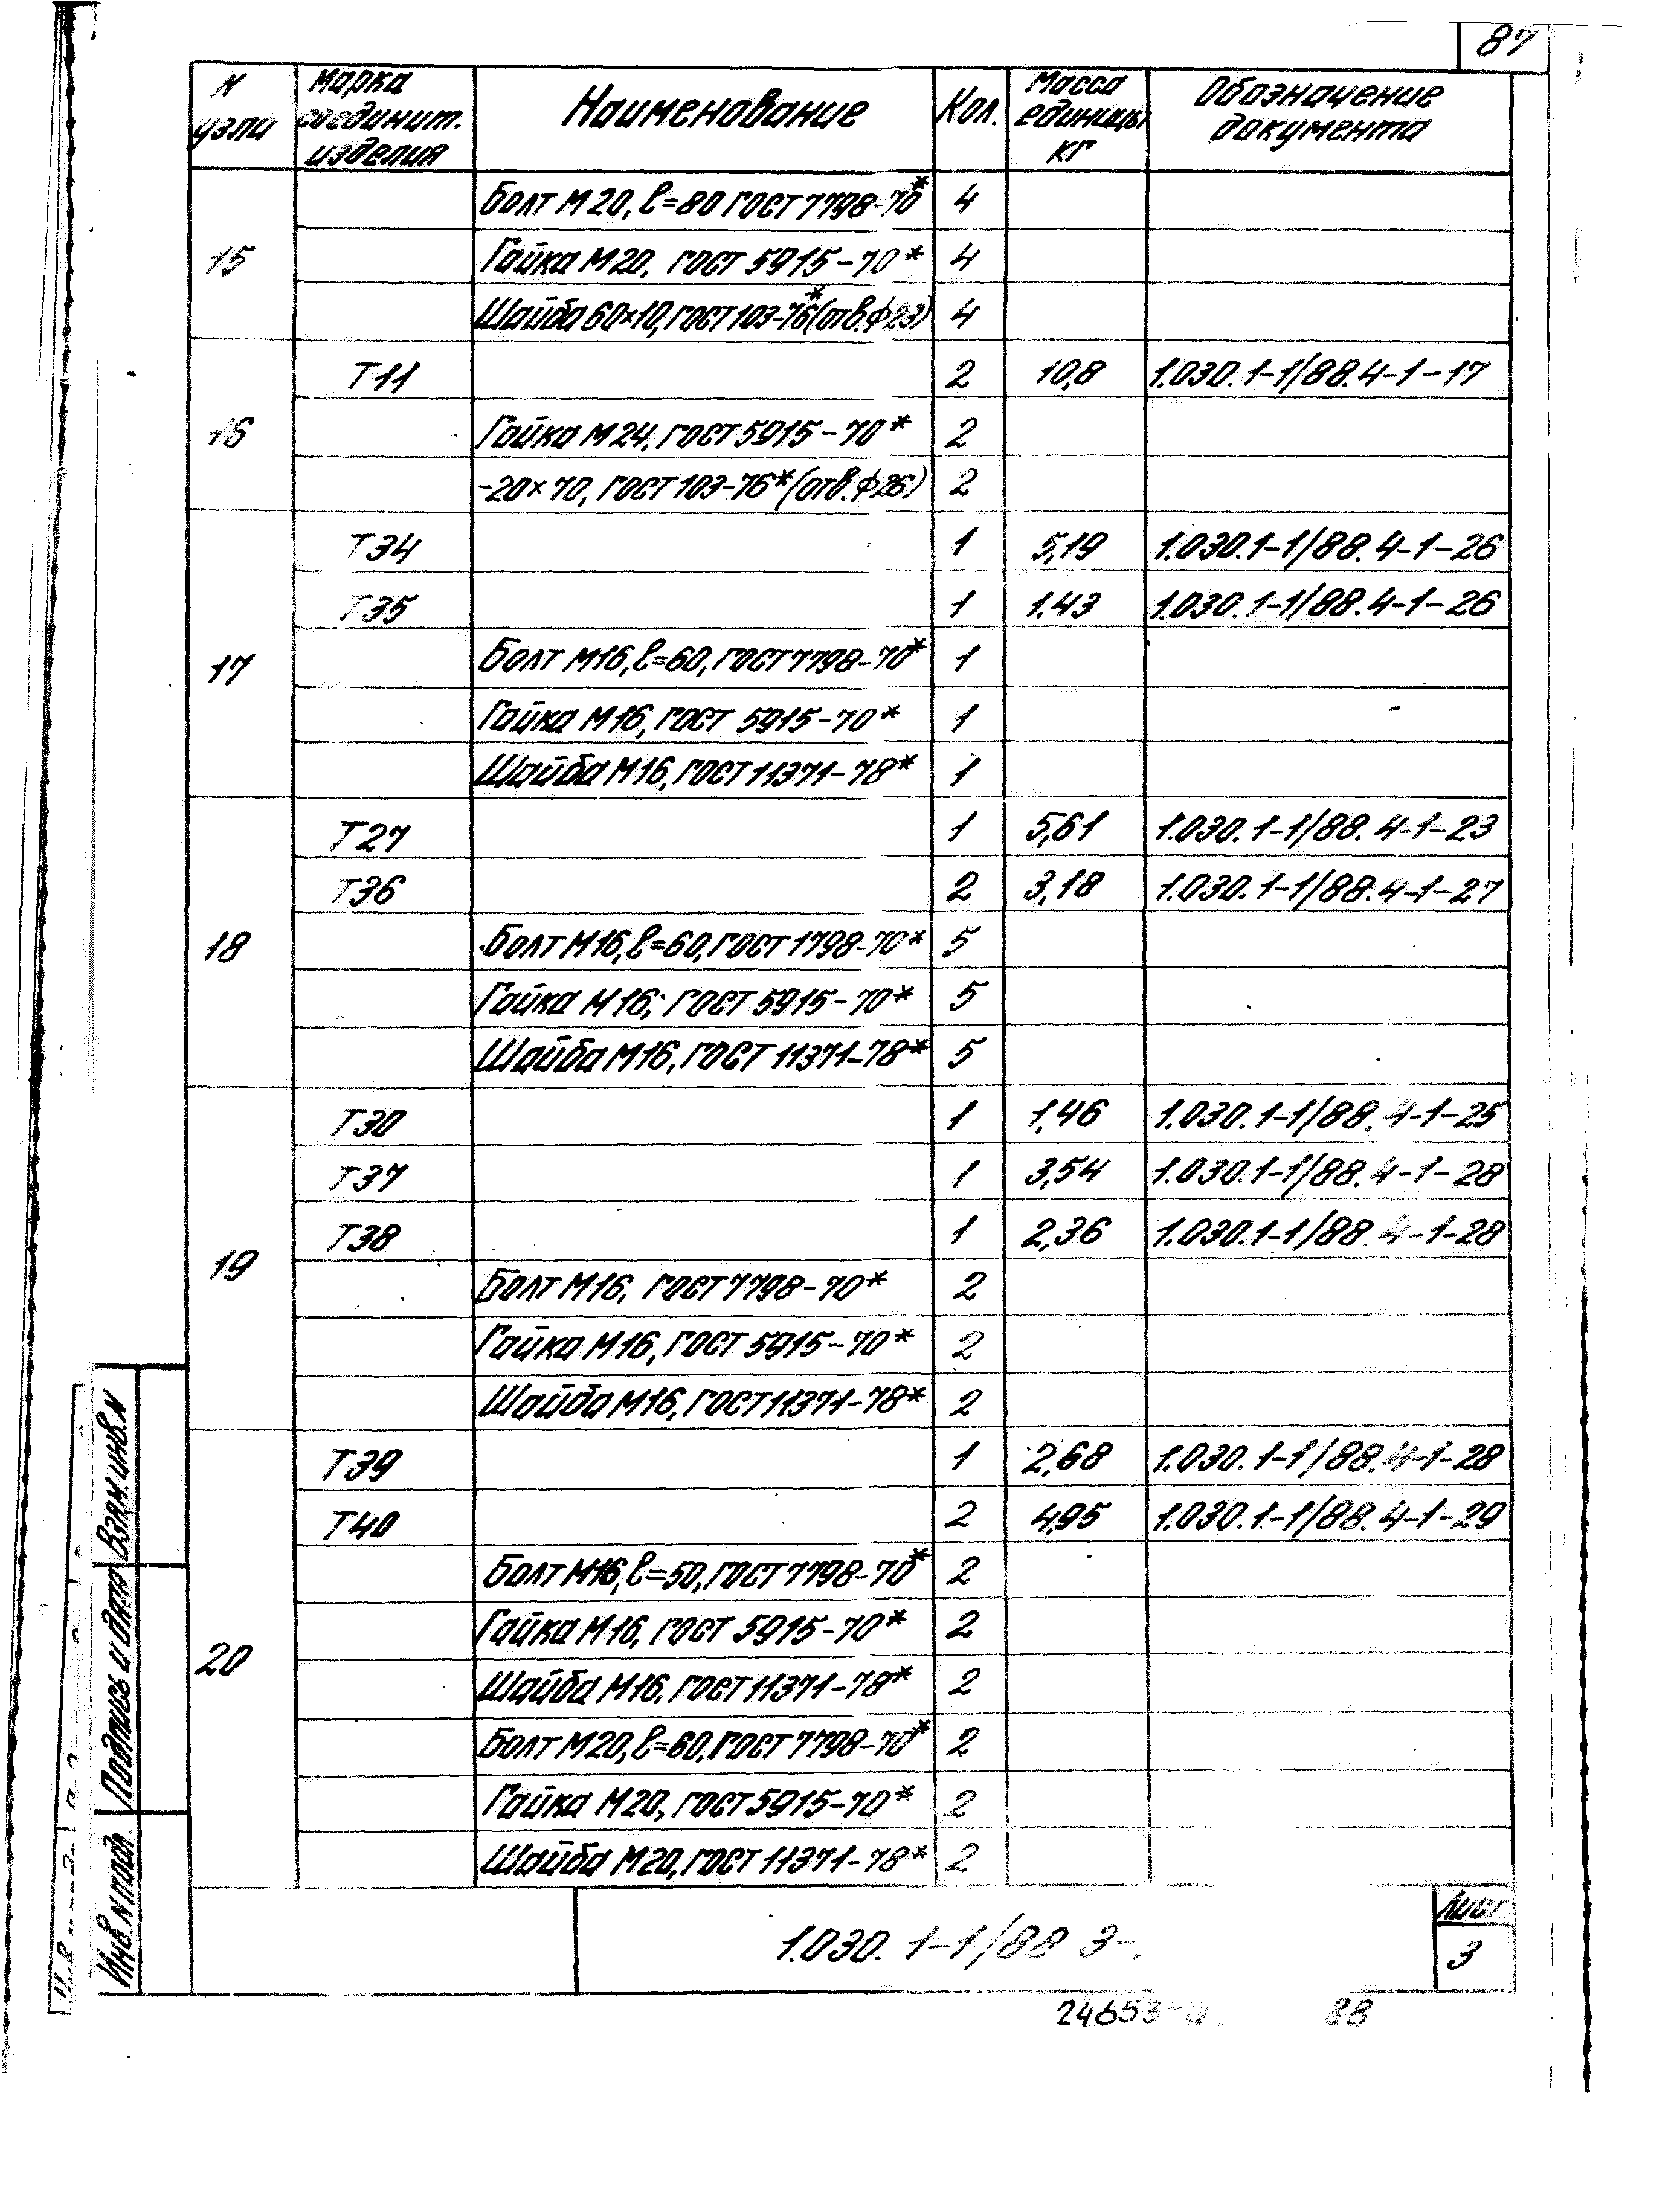 87
N узла Марка соединит. изделия Наименование Кол. Масса единицы кг Обозначение документа
Болт М20, ℓ=80 ГОСТ 7798-70* 4
15 Гайка М20, ГОСТ 5915-70* 4
Шайба 60×10, ГОСТ 103-76* (отв. ф23) 4
Т11 2 10,8 1.030.1-1/88.4-1-17
16 Гайка М24, ГОСТ 5915-70* 2
-20×70, ГОСТ 103-76* (отв. ф26) 2
Т34 1 5,19 1.030.1-1/88.4-1-26
Т35 1 1.43 1.030.1-1/88.4-1-26
17 Болт М16, ℓ=60, ГОСТ 7798-70* 1
Гайка М16, ГОСТ 5915-70* 1
Шайба М16, ГОСТ 11371-78* 1
Т27 1 5,61 1.030.1-1/88.4-1-23
Т36 2 3,18 1.030.1-1/88.4-1-27
18 Болт М16, ℓ=60, ГОСТ 1798-70* 5
Гайка М16; ГОСТ 5915-70* 5
Шайба М16, ГОСТ 11371-78* 5
Т30 1 1,46 1.030.1-1/88.4-1-25
Т37 1 3,54 1.030.1-1/88.4-1-28
Т38 1 2,36 1.030.1-1/88.4-1-28
19 Болт М16, ГОСТ 7798-70* 2
Гайка М16, ГОСТ 5915-70* 2
Шайба М16, ГОСТ 11371-78* 2
Т39 1 2,68 1.030.1-1/88.4-1-28
Т40 2 4,95 1.030.1-1/88.4-1-29
Болт М16, ℓ=50, ГОСТ 7798-70* 2
Гайка М16, ГОСТ 5915-70* 2
20 Шайба М16, ГОСТ 11371-78* 2
Болт М20, ℓ=60, ГОСТ 7798-70* 2
Гайка М20, ГОСТ 5915-70* 2
Шайба М20, ГОСТ 11371-78* 2
Взам. инв. N
Подпись и дата
Инв. N подл.
1.030.1-1/88 3-
Лист
3
24653- 88